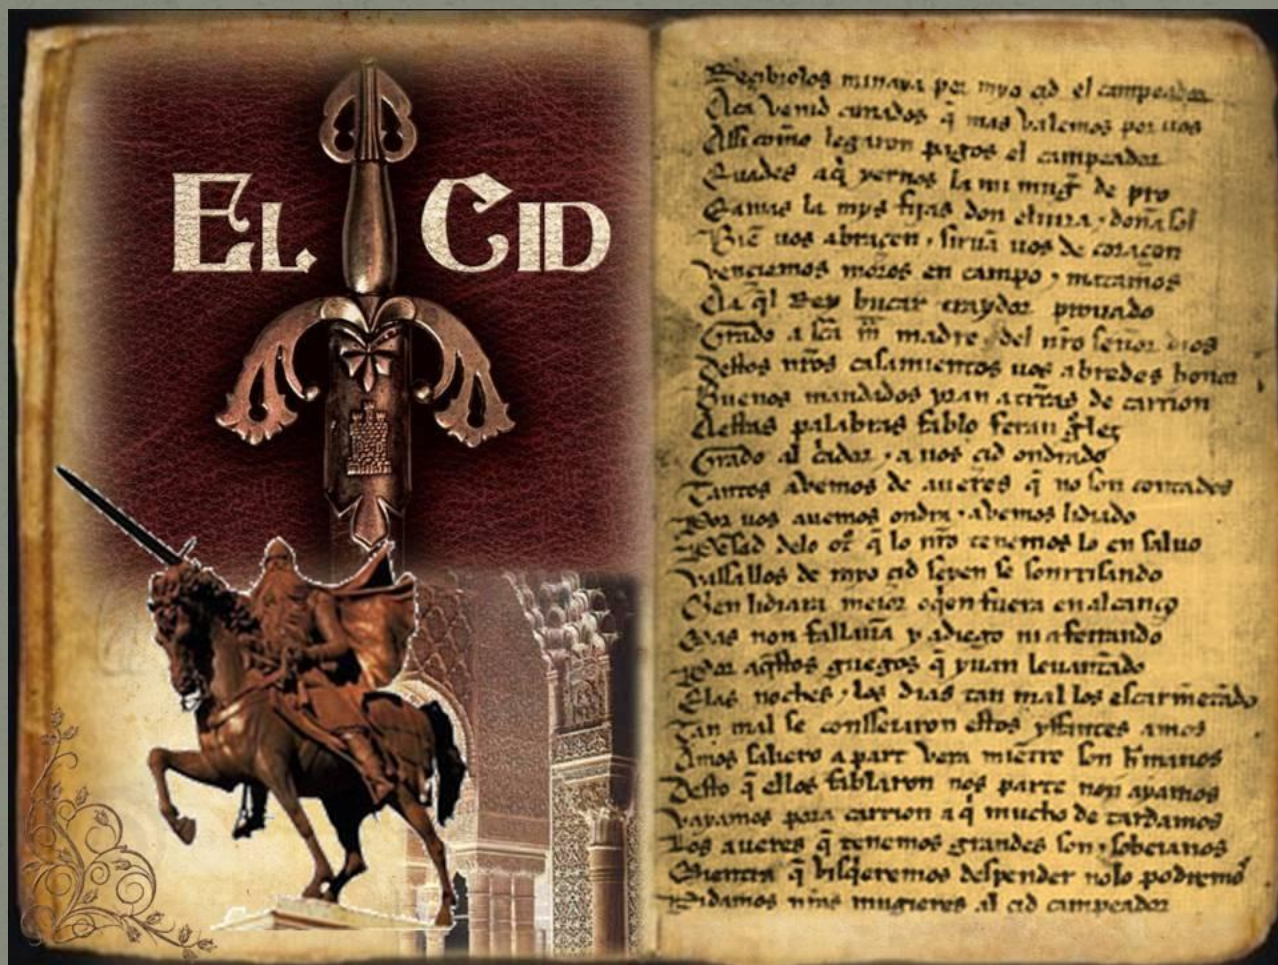 EL CID
Recibiolos minaya por myo cid el campeador
Aca venid cunados q̃ mas valemos por uos
Assi com̃o legaron pagos el campeador
Euades aq̃ yernos la mi mug̃ de pro
Eamas la mys fijas don eluira ⁊ doña sol
Biẽ uos abraçen ⁊ siruã uos de coraçon
Vençiemos moros en campo ⁊ matamos
Aa q̃l Rey bucar traydor prouado
Grado a sc̃a m̃ madre del nr̃o señor dios
Destos nr̃os casamientos uos abredes honor
Buenos mandados yran a tr̃ras de carrion
Aestas palabras fablo feran
Grado al c̃ador ⁊ a uos cid ondrado
Tantos abemos de aueres q̃ no son contados
Por uos auemos ondra ⁊ abemos lidiado
delo ot̃ q̃ lo nr̃o tenemos lo en saluo
Vassallos de myo cid seyen se sonrrisando
Q̃en lidiara meior oq̃en fuera en alcanço
Mas non fallauã y adiego ni aferrando
Por aq̃stos guegos q̃ yuan leuantãdo
Elas noches ⁊ los dias tan mal los escarmẽtãdo
Tan mal se consseiaron estos yffantes amos
Amos saliero apart vera miẽtre son h̃manos
Desto q̃ ellos fablaron nos parte non ayamos
Vayamos pora carrion aq̃ mucho de tardamos
Los aueres q̃ tenemos grandes son ⁊ sobeianos
Mientra q̃ bisq̃eremos despender nolo podremos
Pidamos nr̃as mugieres al cid campeador